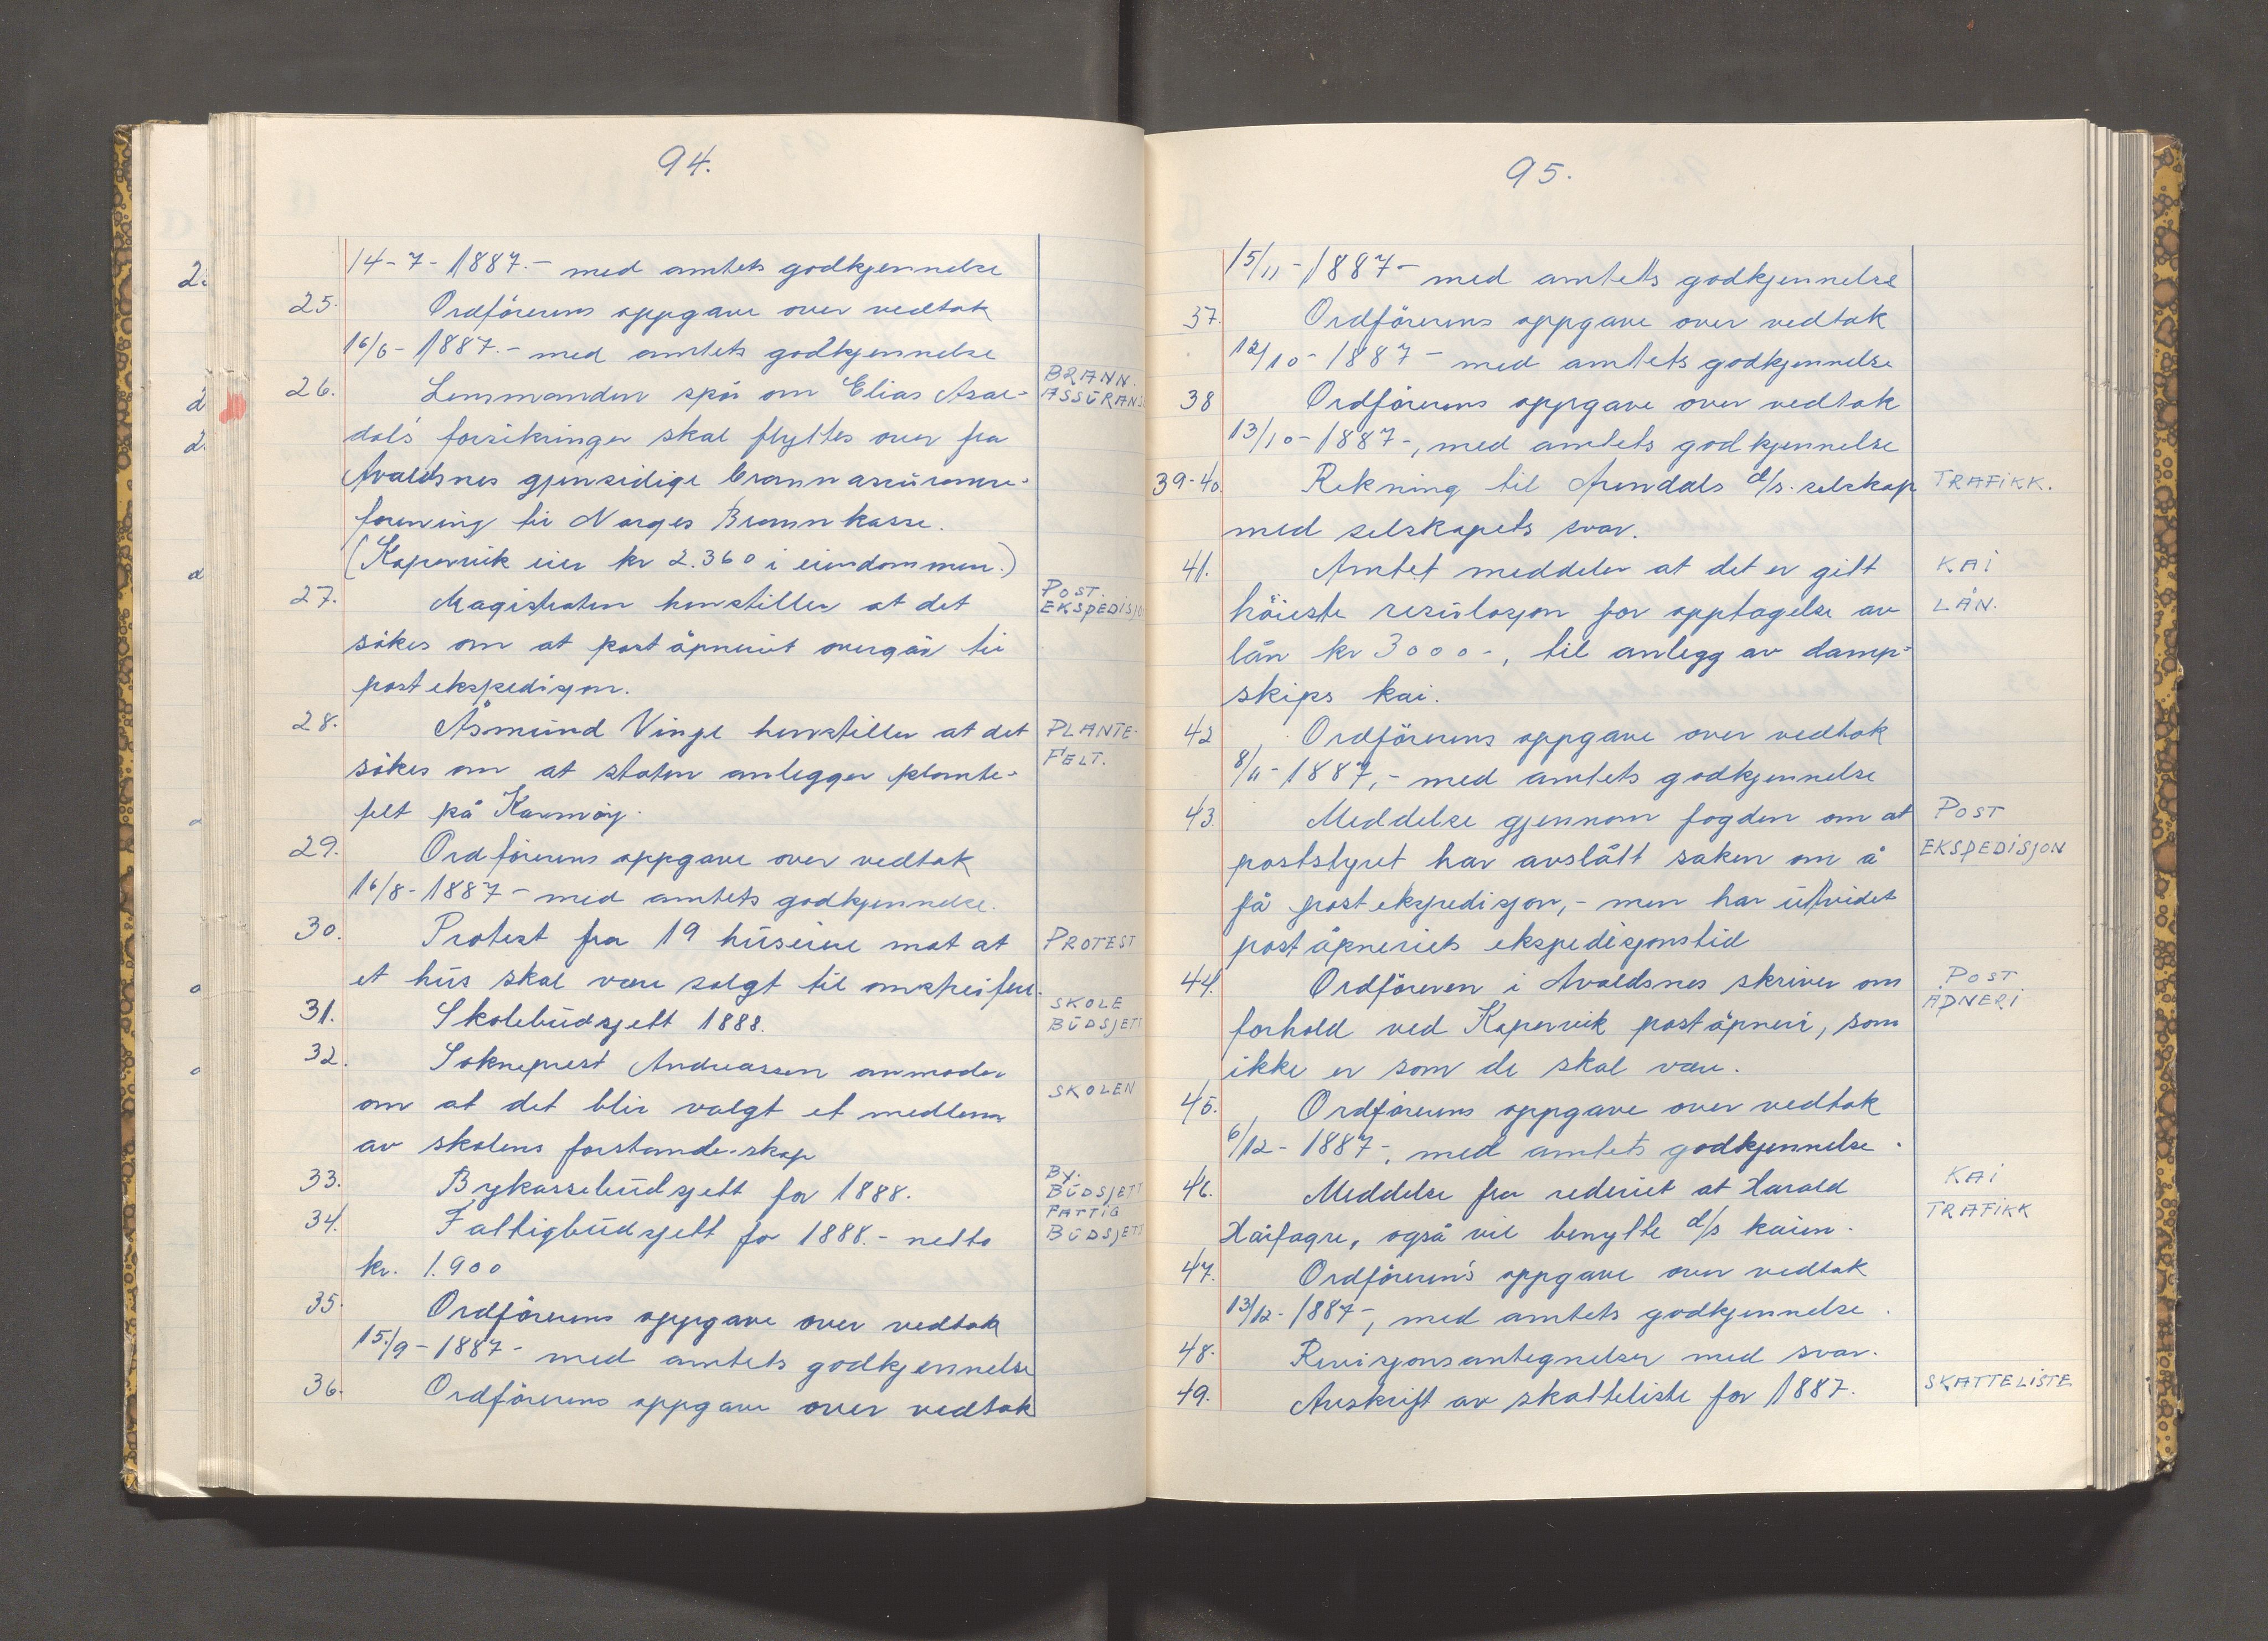 94.
14-7-1887.- med amtets godkjennelse
25. Ordförerens oppgave over vedtak
16/6-1887.- med amtets godkjennelse
26. Lensmanden spör om Elias Asal- BRANN.
dal's forsikringer skal flyttes over fra ASSÜRANS
Avaldsnes gjensidige brannassüranse-
forening til Norges Brannkasse.
(Kopervik eier kr 2.360 i eiendommen.)
27. Magistraten henstiller at det POST.
sökes om at poståpneriet overgår til EKSPEDISJO
postekspedisjon.
28. Åsmünd Vinje henstiller at det PLANTE-
sökes om at staten anlegger plante- FELT.
felt på Karmöy.
29. Ordförerens oppgave over vedtak
16/8-1887- med amtets godkjennelse.
30. Protest fra 19 hüseiere mot at PROTEST
et hüs skal være solgt til omstreifere.
31. Skolebüdsjett 1888. SKOLE BÜDSJETT
32. Sokneprest Andreassen anmoder
om at det blir valgt et medlem SKOLEN
av skolens forstanderskap
33. Bykassebüdsjett for 1888. BY. BÜDSJETT
34. Fattigbüdsjett for 1888.- netto FATTIG BÜDSJETT
kr. 1.900
35. Ordförerens oppgave over vedtak
15/9-1887- med amtets godkjennelse
36. Ordförerens oppgave over vedtak
95.
15/11-1887- med amtets godkjennelse
37. Ordförerens oppgave over vedtak
12/10-1887- med amtets godkjennelse
38 Ordförerens oppgave over vedtak
13/10-1887-, med amtets godkjennelse
39-40. Rekning til Arendals d/s. selskap TRAFIKK.
med selskapets svar.
41. Amtet meddeler at det er gitt KAI
höieste resülosjon for opptagelse av LÅN.
lån kr 3000-, til anlegg av damp-
skips kai.
42 Ordförerens oppgave over vedtak
8/11-1887,- med amtets godkjennelse
43. Meddelse gjennom fogden om at POST
poststyret har avslått saken om å EKSPEDISJON
få postekspedisjon,- men har ütvidet
poståpneriets ekspedisjonstid
44. Ordföreren i Avaldsnes skriver om POST
forhold ved Kopervik poståpneri, som ÅPNERI
ikke er som de skal være.
45. Ordförerens oppgave over vedtak
6/12-1887-, med amtets godkjennelse.
46. Meddelse fra rederiet at Harald KAI
Hårfagre, også vil benytte d/s kaien. TRAFIKK
47. Ordföreren's oppgave over vedtak
13/12-1887-, med amtets godkjennelse.
48. Revisjonsantegnelser med svar.
49. Avskrift av skatteliste for 1887. SKATTELISTE